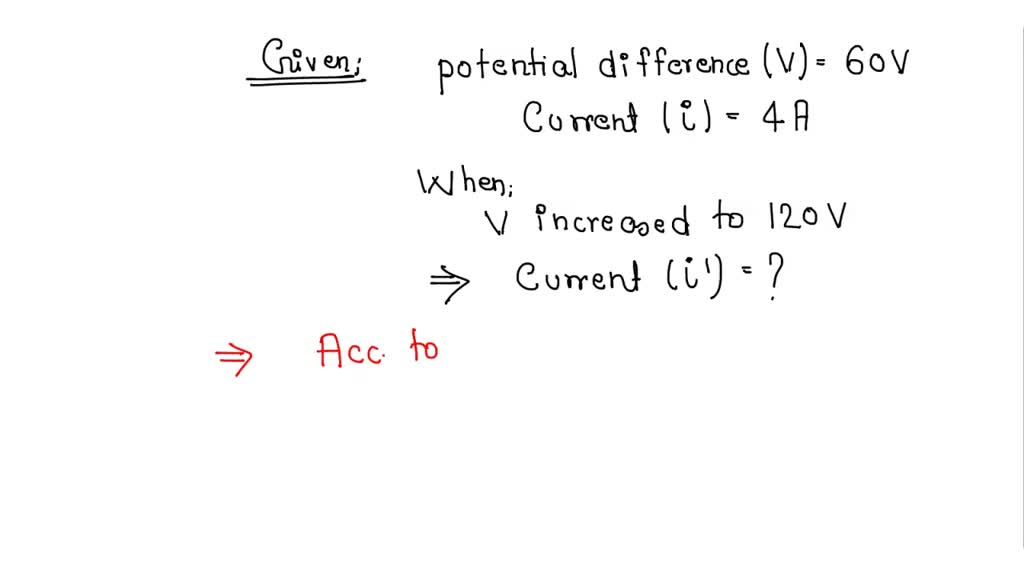 Given; potential difference (V) = 60V
Current (i) = 4A
When;
V increased to 120V
⇒ Current (i') = ?
⇒ Acc. to